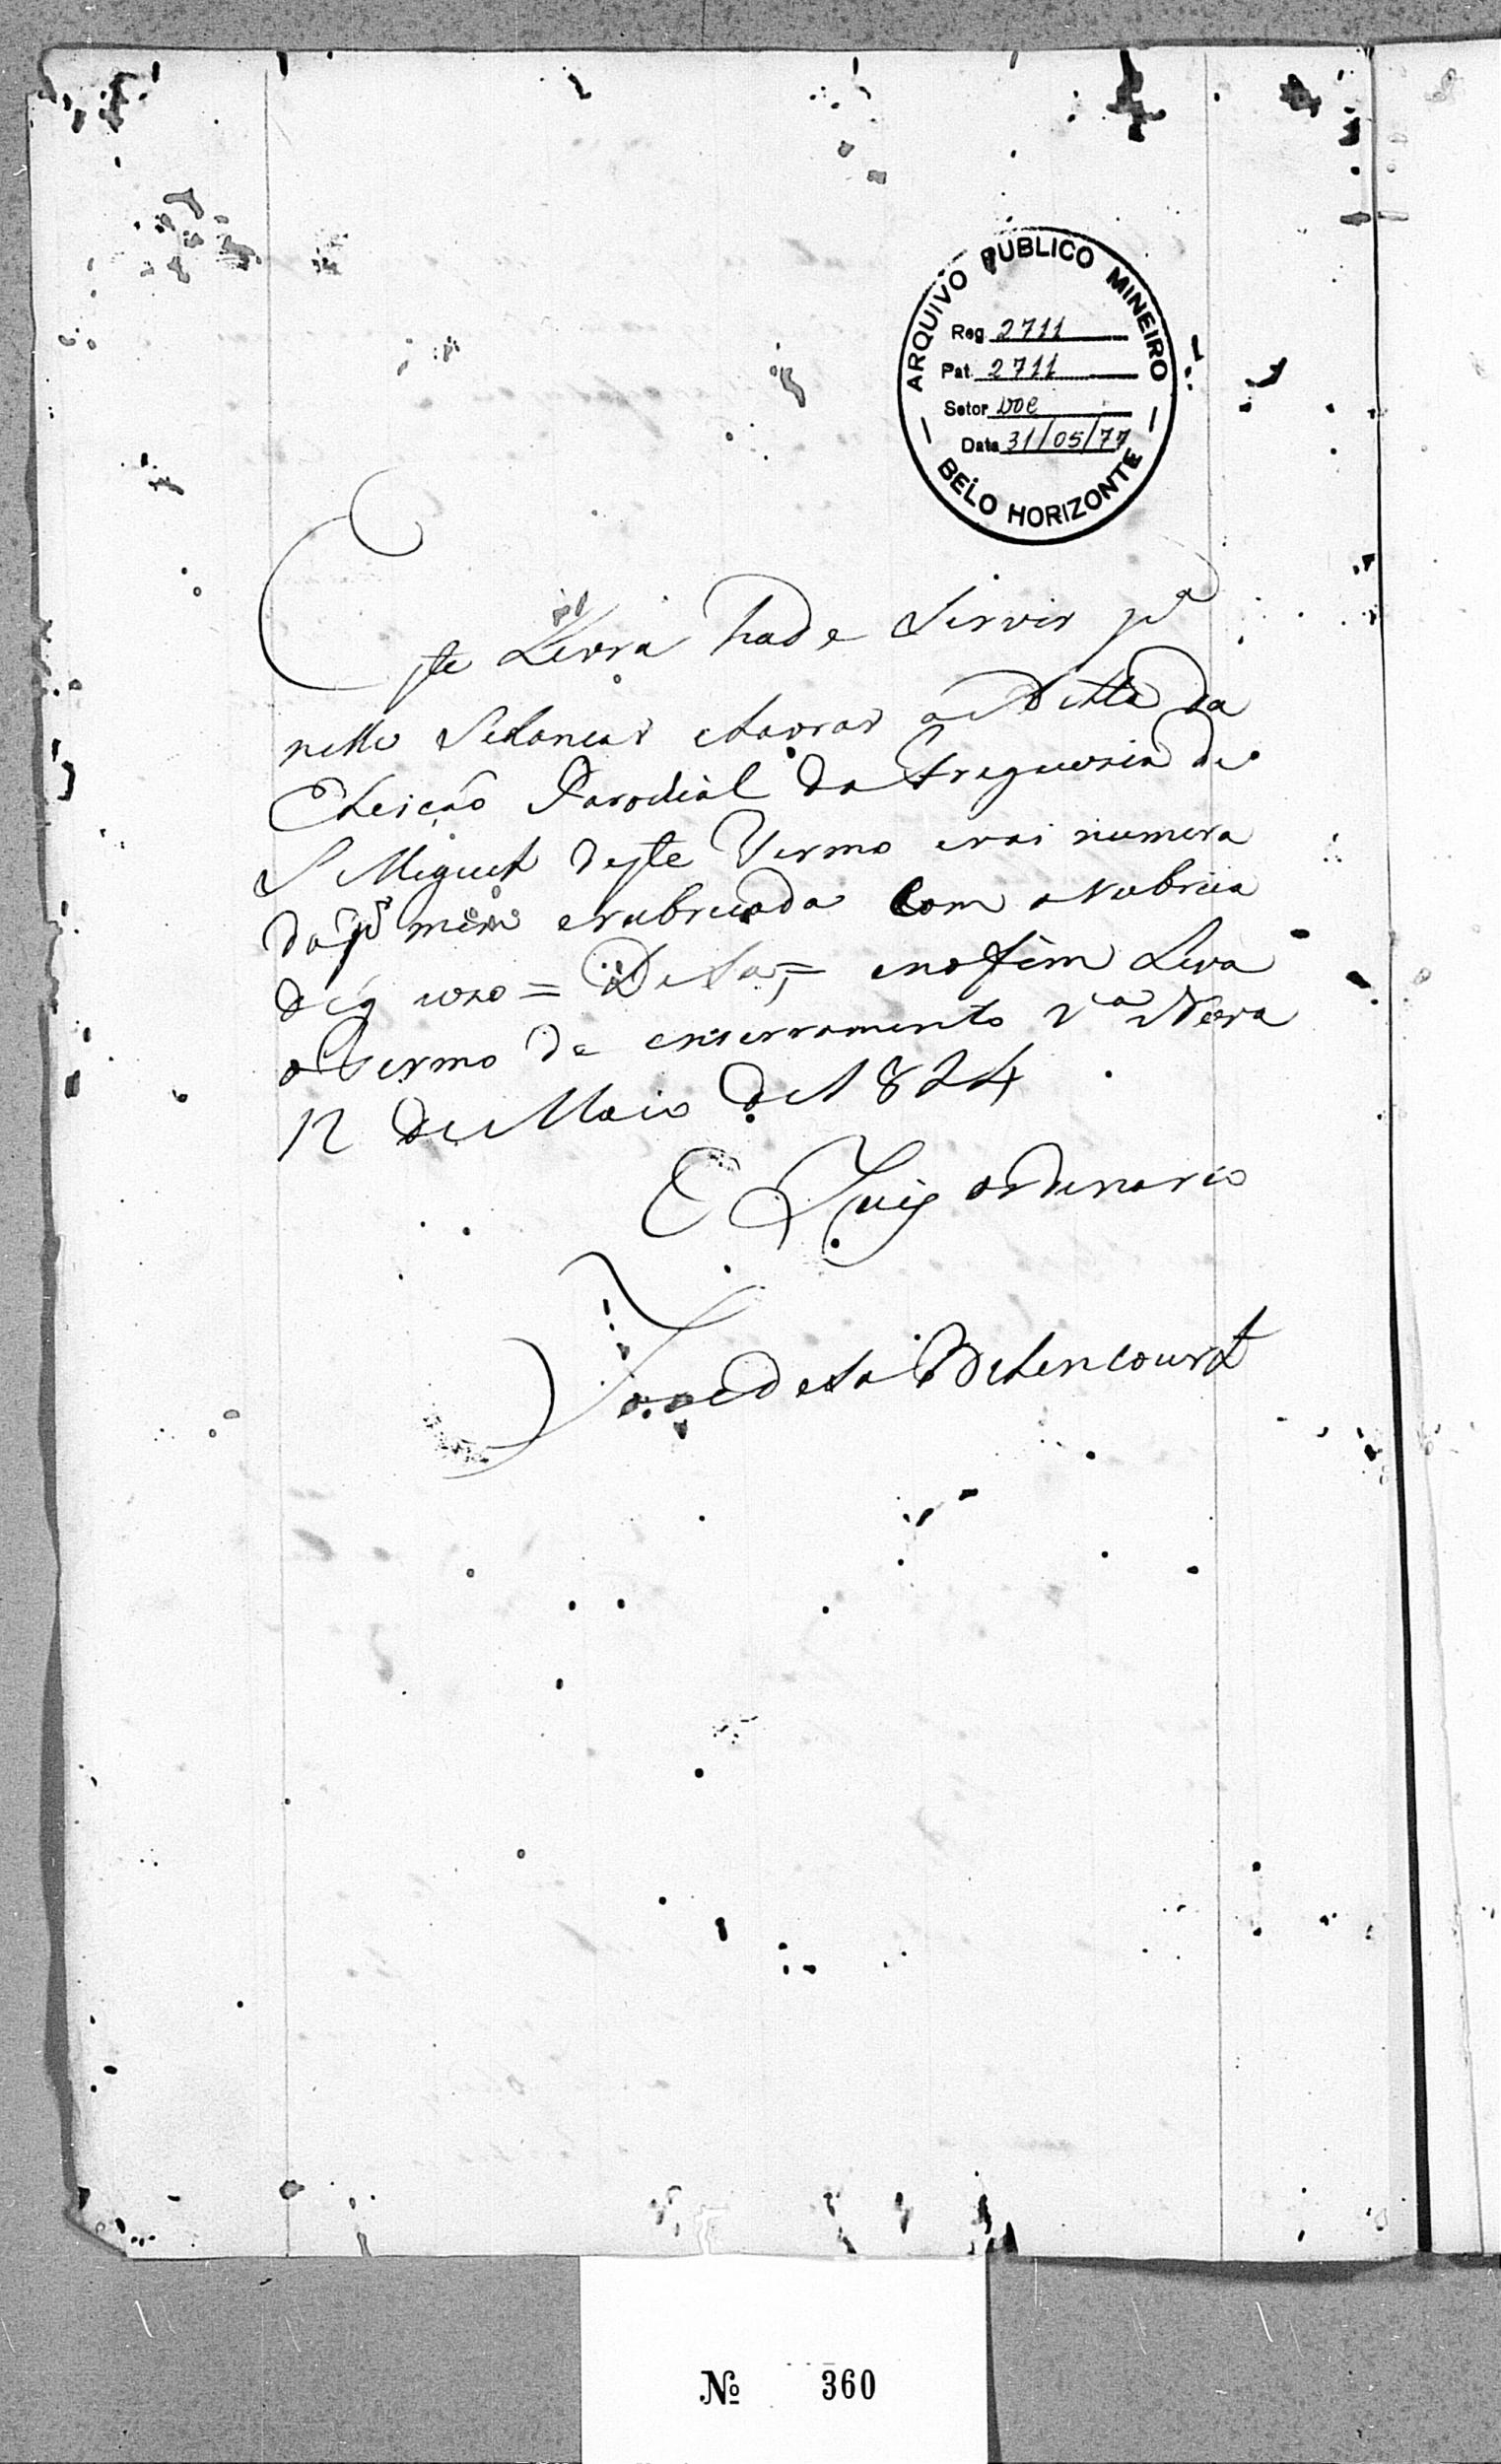 ARQUIVO PUBLICO MINEIRO
Reg. 2711
Pat. 2711
Setor DOC
Data 31/05/77
BELO HORIZONTE
Este Livro hade Servir pª
nelle Selancar eLavrar aActa da
Eleicaõ Parochial da Freguezia de
S Miguel deste Termo evai numera
do pʳ mim erubricado Com aRubrica
deq uzo = DeSa, = enofim Leva
oTermo de enserramento Vª Nova
12 de Maio de 1824
O Juiz ordinario
Joze deSa Betencourt
№ 360